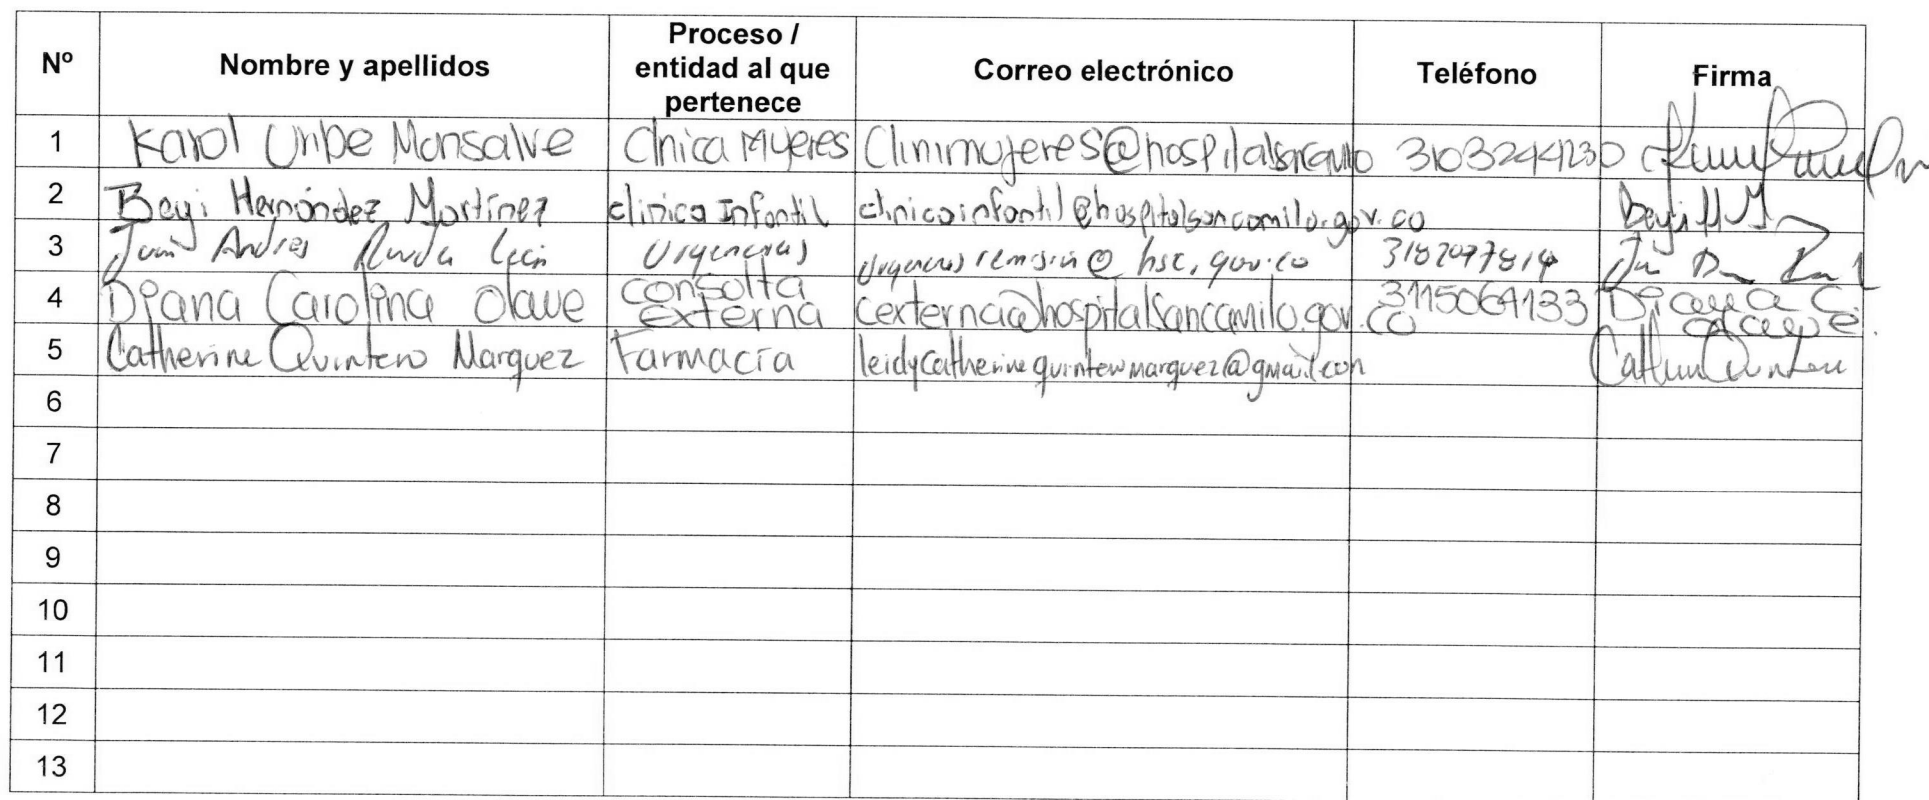 Nº Nombre y apellidos Proceso / entidad al que pertenece Correo electrónico Teléfono Firma
1 Karol Uribe Monsalve Clnica Mujeres 3103244230
2 Beyi Hernández Martínez clinica Infantil clinicainfantil@hospitalsancamilo.gov.co
3 Juan Andres Rueda León Urgencias 3182977814
4 Diana Carolina Olave consolta externa cexterna@hospitalsancamilo.gov.co 3115064133 Diana C. Olave
5 Catherine Quintero Marquez Farmacia leidycatherinequinteromarquez@gmail.com
6
7
8
9
10
11
12
13